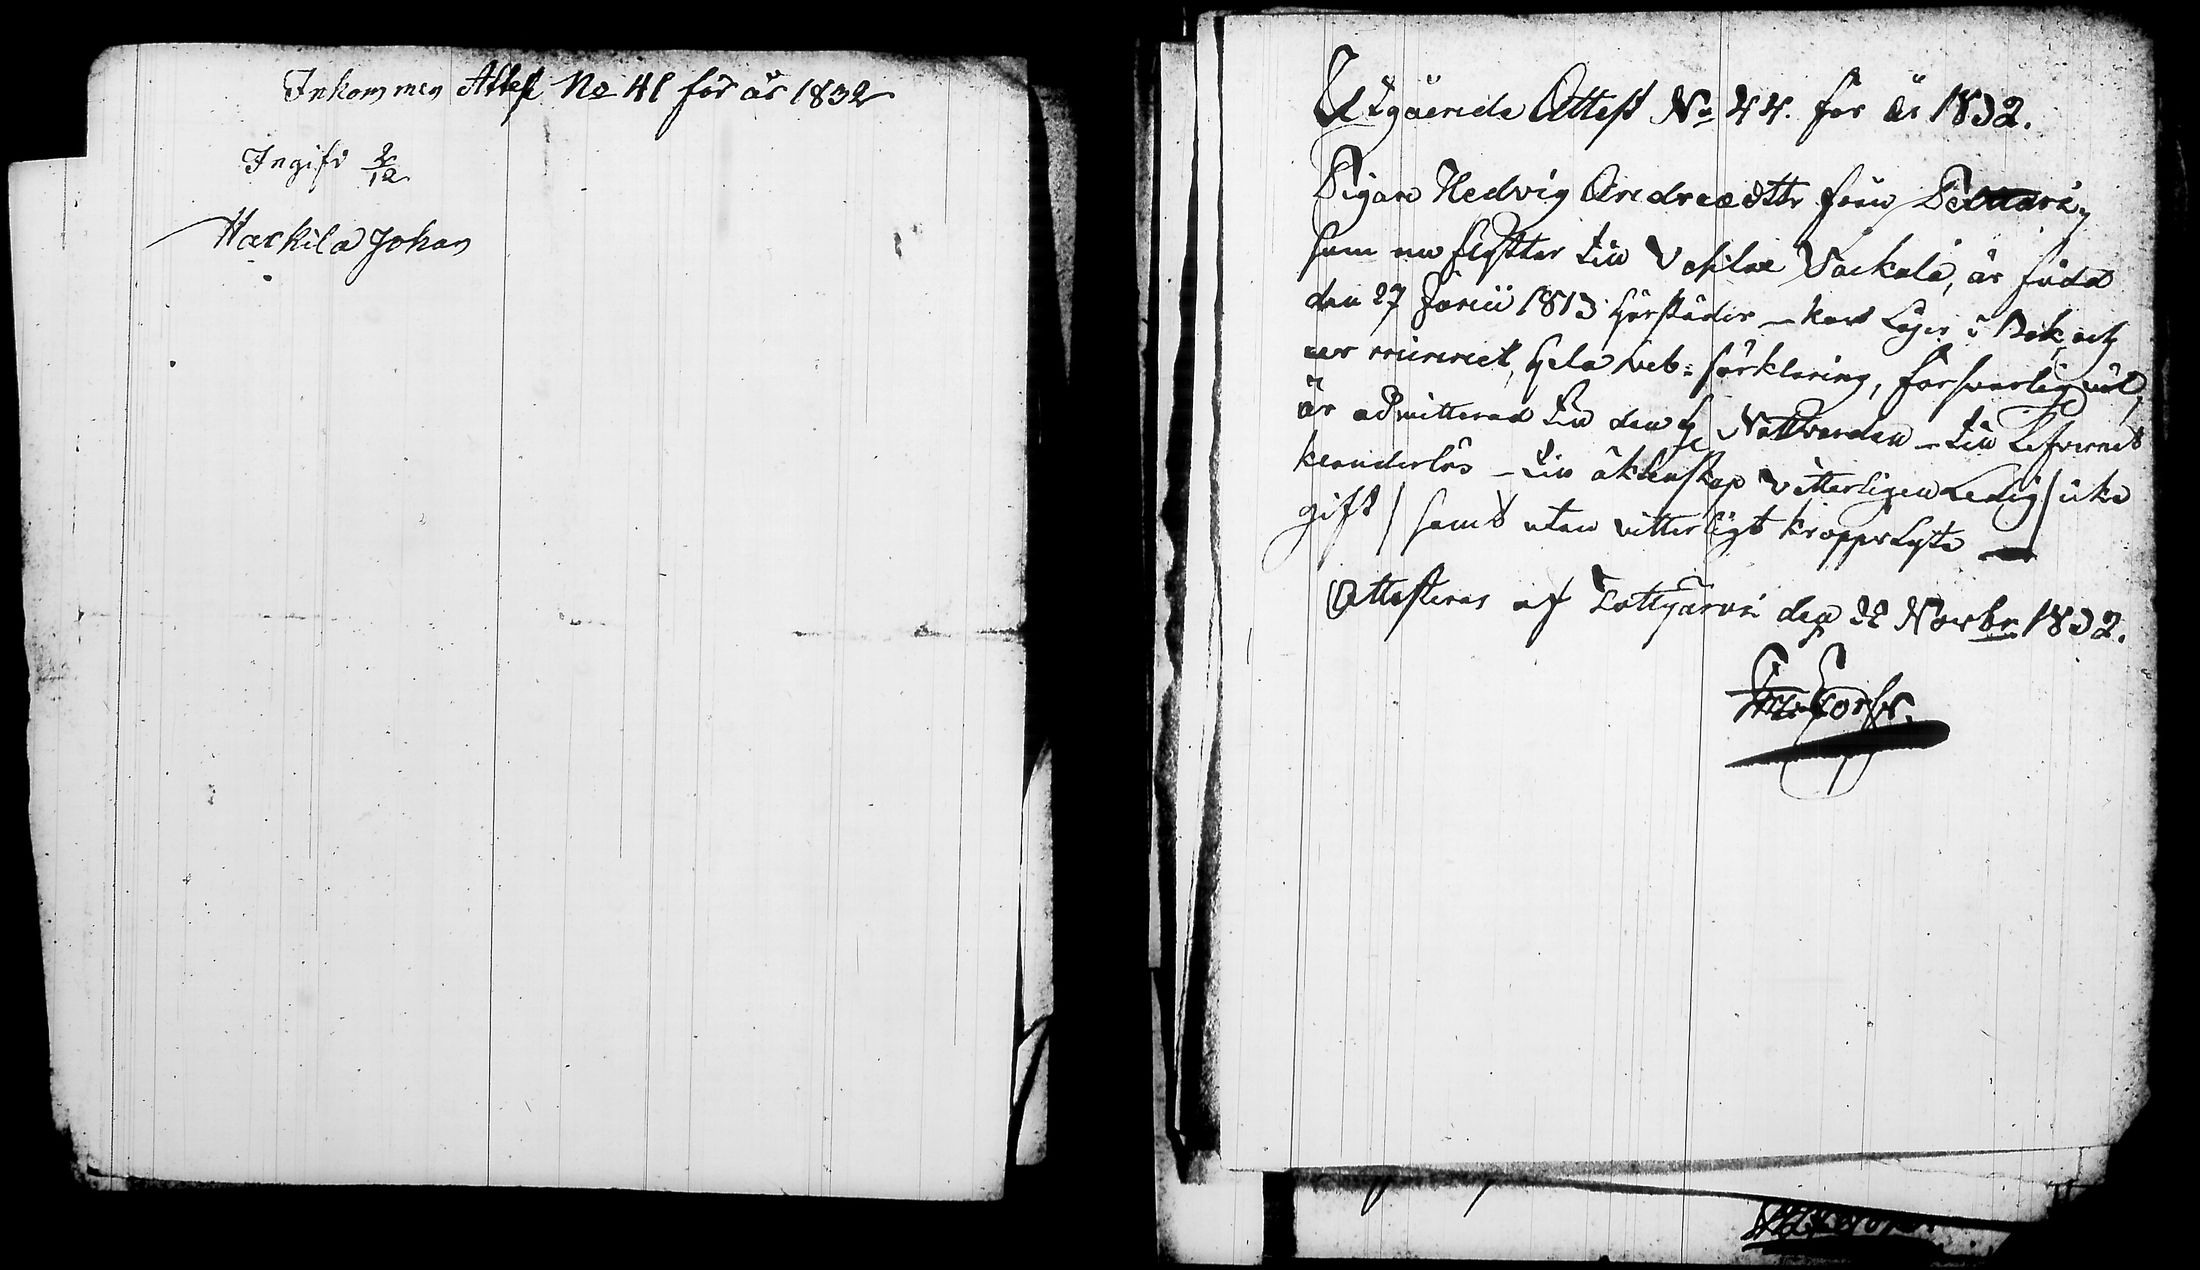 Inkommen Attest No 41 för år 1832
Ingift 2/12
Harkila Johan
Utgående Attest No 44. för år 1832.
Pigan Hedvig Andreædttr från
som nu flyttar till Vesilax Vackala, är född
den 27 Junii 1813 härstädes – kan Läsa i Bok, och
ur minnet, hela Cateb: förklaring, försvarlig väl,
är admitterad till den H. Nattvarden – till Lefvernet
klanderlös – till äktenskap vitterligen Ledig / icke
gift / samt utan vitterligt kroppslyte —
Attesteras af Tottijärvi den 22 Novbr 1832.